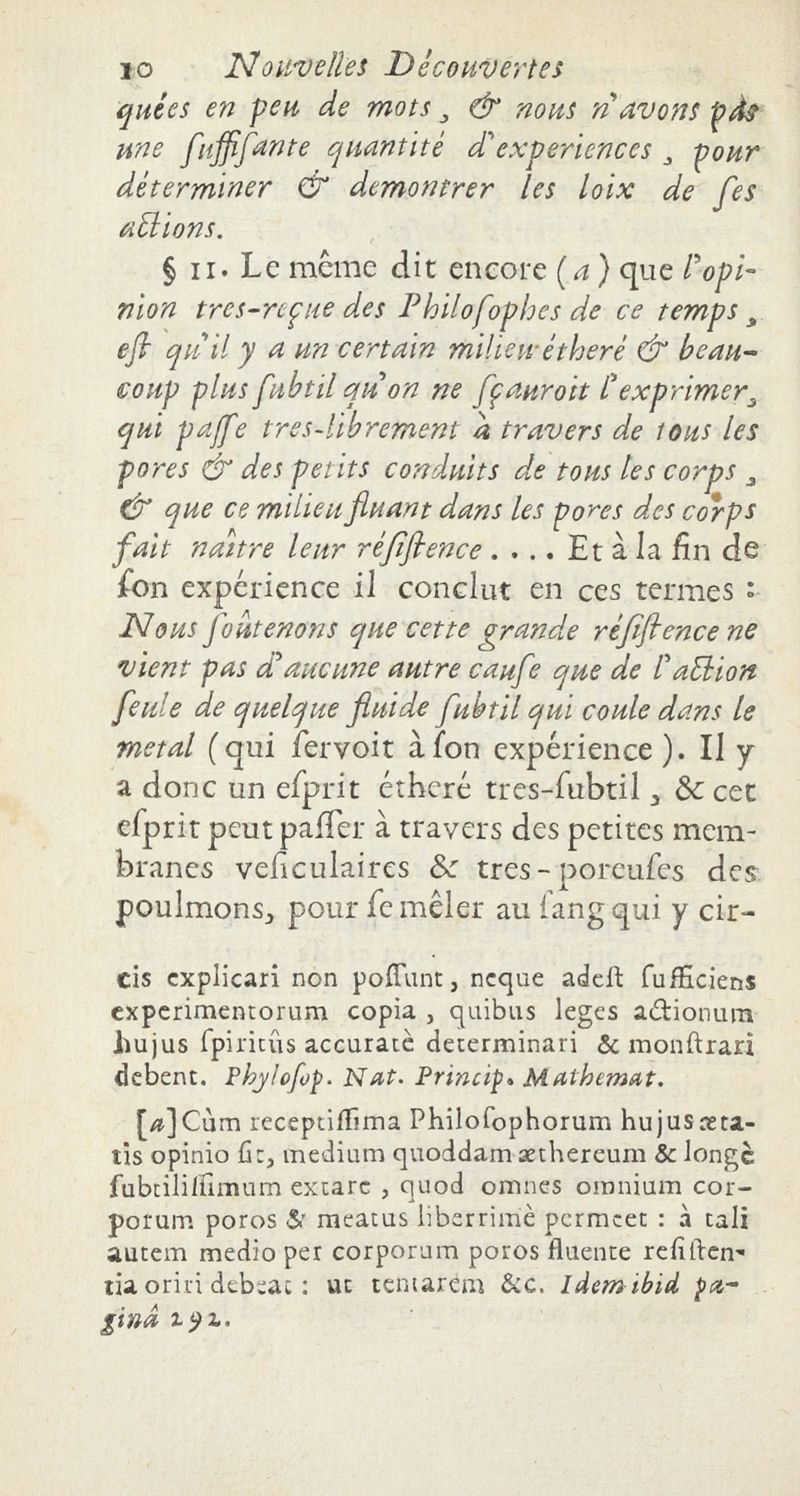 10 Nouvelles Découvertes
quées en peu de mots, & nous n'avons pas
une ſuffiſante quantité d'experiences, pour
déterminer & demontrer les loix de ſes
actions.
§ 11. Le même dit encore (a) que l'opi-
nion tres-reçue des Philoſophes de ce temps,
eſt qu'il y a un certain milieu étheré & beau-
coup plus ſubtil qu'on ne ſçauroit l'exprimer,
qui paſſe tres-librement à travers de tous les
pores & des petits conduits de tous les corps,
& que ce milieu fluant dans les pores des corps
fait naître leur réſiſtence . . . . Et à la fin de
ſon expérience il conclut en ces termes :
Nous ſoûtenons que cette grande réſiſtence ne
vient pas d'aucune autre cauſe que de l'action
ſeule de quelque fluide ſubtil qui coule dans le
metal (qui ſervoit à ſon expérience). Il y
a donc un eſprit étheré tres-ſubtil, & cet
eſprit peut paſſer à travers des petites mem-
branes veſiculaires & tres-poreuſes des
poulmons, pour ſe mêler au ſang qui y cir-
cis explicari non poſſunt, neque adeſt ſufficiens
experimentorum copia, quibus leges actionum
hujus ſpiritûs accuratè determinari & monſtrari
debent. Phyloſop. Nat. Princip. Mathemat.
[a] Cùm receptiſſima Philoſophorum hujus æta-
tis opinio ſit, medium quoddam æthereum & longè
ſubtiliſſimum extare, quod omnes omnium cor-
porum poros & meatus liberrimè permeet : à tali
autem medio per corporum poros fluente reſiſten-
tia oriri debeat : ut tentarem &c. Idem ibid pa-
ginâ 292.